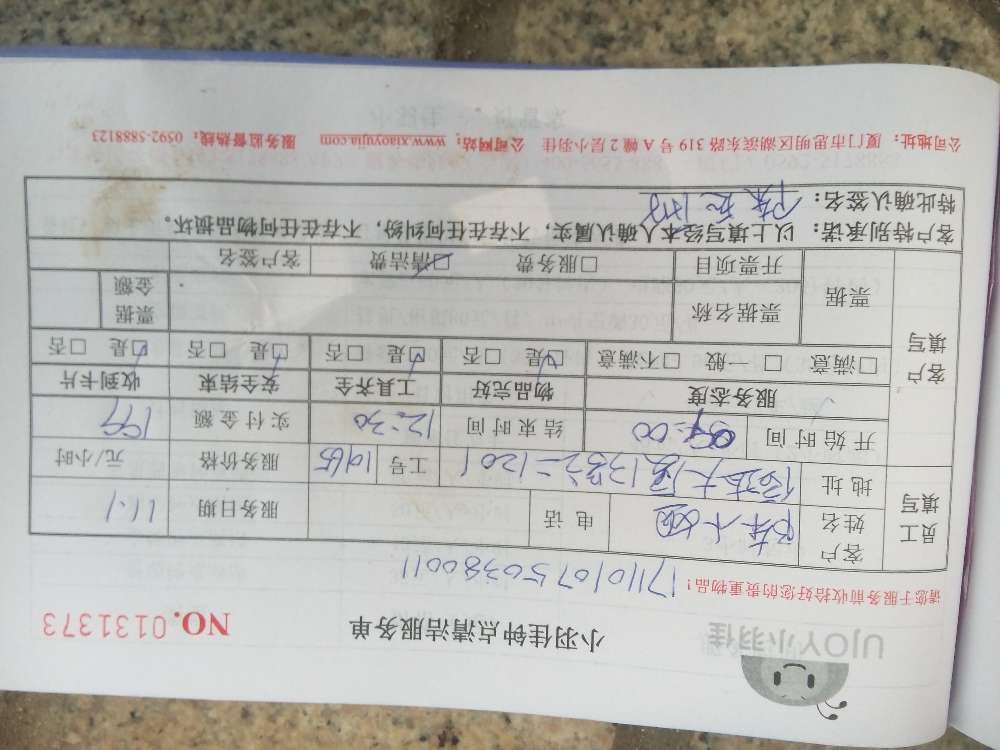 UJOY小羽佳
小羽佳钟点清洁服务单
NO.0131373
请您于服务前收拾好您的贵重物品!
1711010750380011
员工填写
客户姓名 陈小姐 电话 服务日期 11.1
地址 1201 工号 1065 服务价格 元/小时
开始时间 09:00 结束时间 12:30 实付金额 199
客户填写
服务态度 物品完好 工具齐全 安全结束 收到卡片
□满意 □一般 □不满意 □是 □否 □是 □否 □是 □否 □是 □否
票据 票据名称 票据金额
开票项目 □服务费 □清洁费 客户签名
客户特别承诺:以上填写经本人确认属实,不存在任何纠纷,不存在任何物品损坏。
特此确认签名:
公司地址:厦门市思明区湖滨东路319号A幢2层小羽佳 公司网站:www.xiaoyujia.com 服务监督热线:0592-5888123